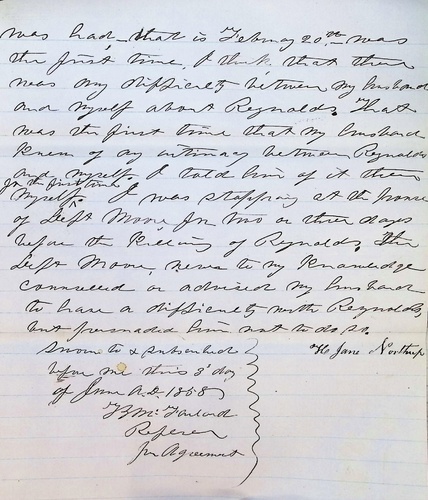 was had, that is Februy 20th was
the first time, I think, that there
was my difficulty between my husband
and myself about Reynolds. That
was the first time that my husband
knew of my intimacy between Reynolds
and myself. I told him of it then
for the first time
myself. I was stopping at the house
of Deft Moore, for two or three days
before the killing of Reynolds. The
Deft Moore, never to my knowledge
counselled or advised my husband
to have a difficulty with Reynolds,
but persuaded him not to do so.
Jane Northrup
Sworn to & subscribed
before me this 3d day
of June A.D. 1858
McFarland
Referee
for Agreement